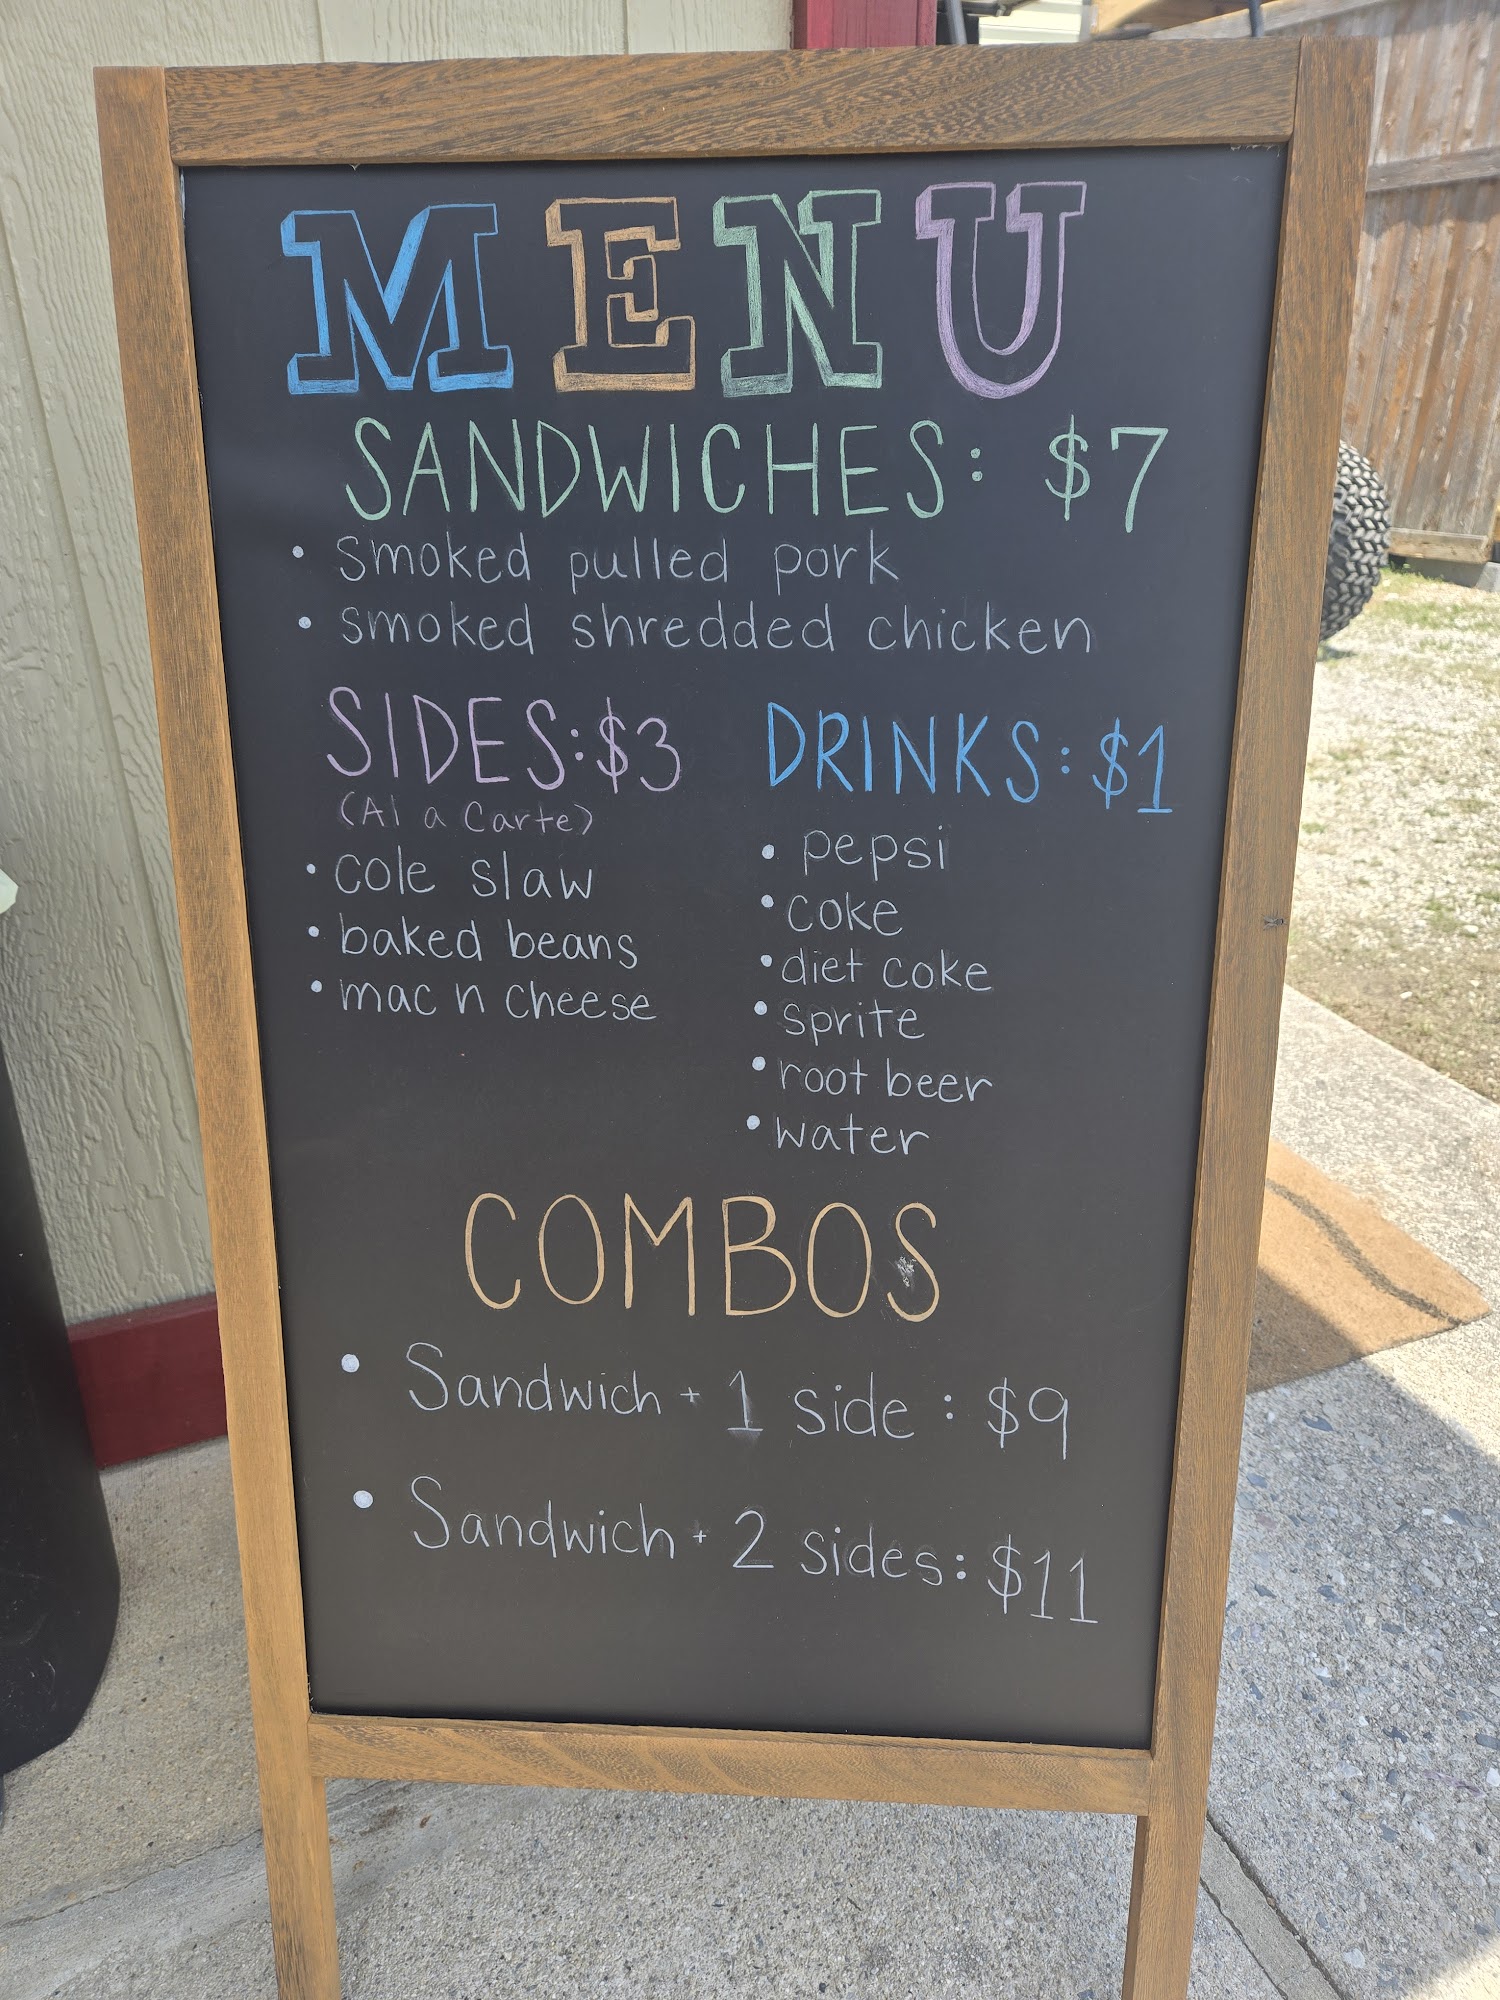 MENU
SANDWICHES: $7
• smoked pulled pork
• smoked shredded chicken
SIDES: $3
(Al a Carte)
• cole slaw
• baked beans
• mac n cheese
DRINKS: $1
• pepsi
• coke
• diet coke
• sprite
• root beer
• water
COMBOS
• Sandwich + 1 side : $9
• Sandwich + 2 sides: $11